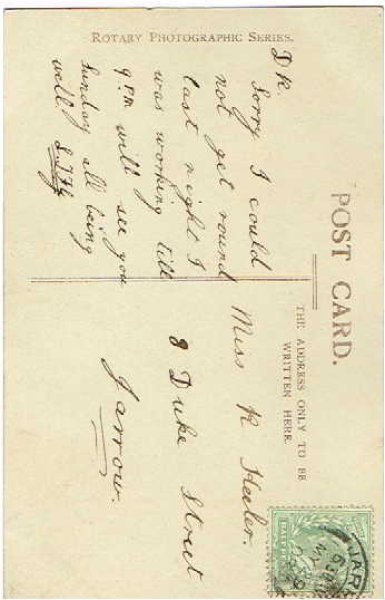 ROTARY PHOTOGRAPHIC SERIES.
POST CARD.
THE ADDRESS ONLY TO BE
WRITTEN HERE.
Dk.
Sorry I could
not get round
last night I
was working till
9 P.M. will see you
Sunday all being
well.
Miss K
8 Duke Street
Jarrow.
JAR